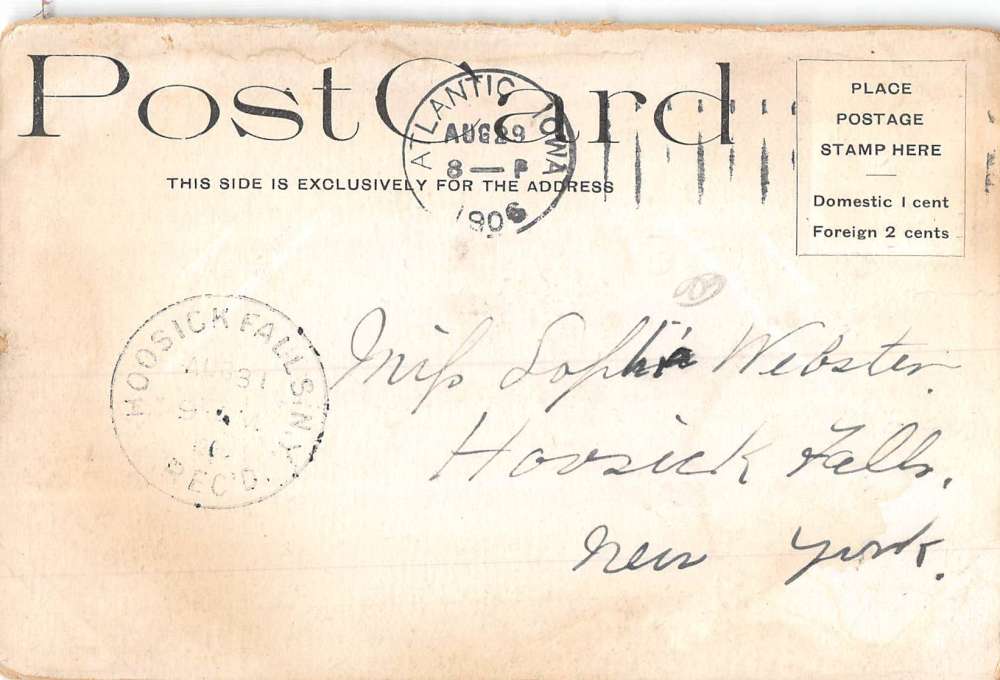 Post Card
THIS SIDE IS EXCLUSIVELY FOR THE ADDRESS
ATLANTIC IOWA
AUG 29
8 — P
1906
PLACE
POSTAGE
STAMP HERE
Domestic 1 cent
Foreign 2 cents
HOOSICK FALLS. N.Y.
AUG 31
REC'D.
Miss Sophia Webster
Hoosick Falls.
New York.